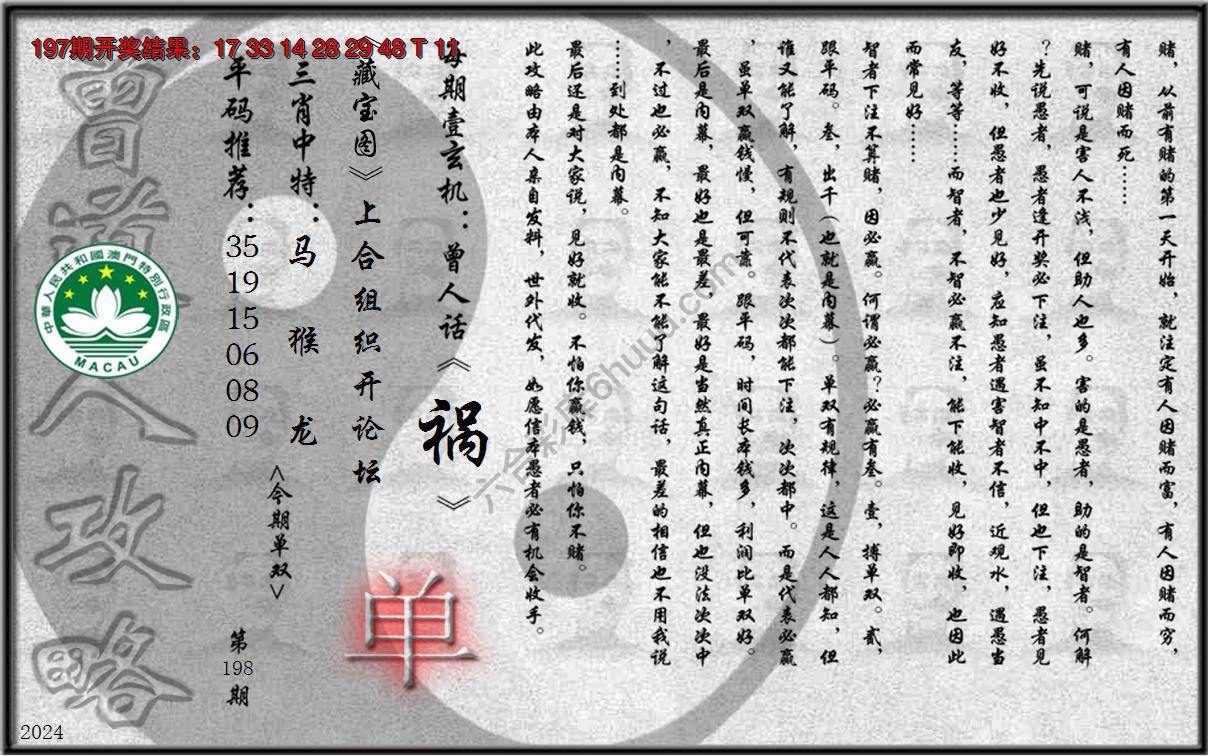 197期开奖结果：17 33 14 28 29 48 T 11
赌，从前有赌的第一天开始，就注定有人因赌而富，有人因赌而穷，
有人因赌而死……
赌，可说是害人不浅，但助人也多。害的是愚者，助的是智者。何解
？先说愚者，愚者逢开奖必下注，虽不知中不中，但也下注，愚者见
好不收，但愚者也少见好，应知愚者遇害智者不信，近观水，遇愚当
友，等等……而智者，不智必赢不注，能下能收，见好即收，也因此
而常见好……
智者下注不算赌，因必赢。何谓必赢？必赢有叁。壹，搏单双。贰，
跟平码。叁，出千（也就是内幕）。单双有规律，这是人人都知，但
谁又能了解，有规则不代表次次都能下注，次次都中。而是代表必赢
，虽单双赢钱慢，但可靠。跟平码，时间长本钱多，利润比单双好。
最后是内幕，最好也是最差，最好是当然真正内幕，但也没法次次中
，不过也必赢，不知大家能不能了解这句话，最差的相信也不用我说
……到处都是内幕。
最后还是对大家说，见好就收。不怕你赢钱，只怕你不赌。
此攻略由本人亲自发料，世外代发，如愿信本愚者必有机会收手。
每期壹玄机：曾人话《祸》
《藏宝图》上合组织开论坛
单
三肖中特：马 猴 龙
<今期单双>
平码推荐：35 19 15 06 08 09
第198期
曾道人攻略
中華人民共和國澳門特別行政區
MACAU
六合彩库6huuu.com
2024